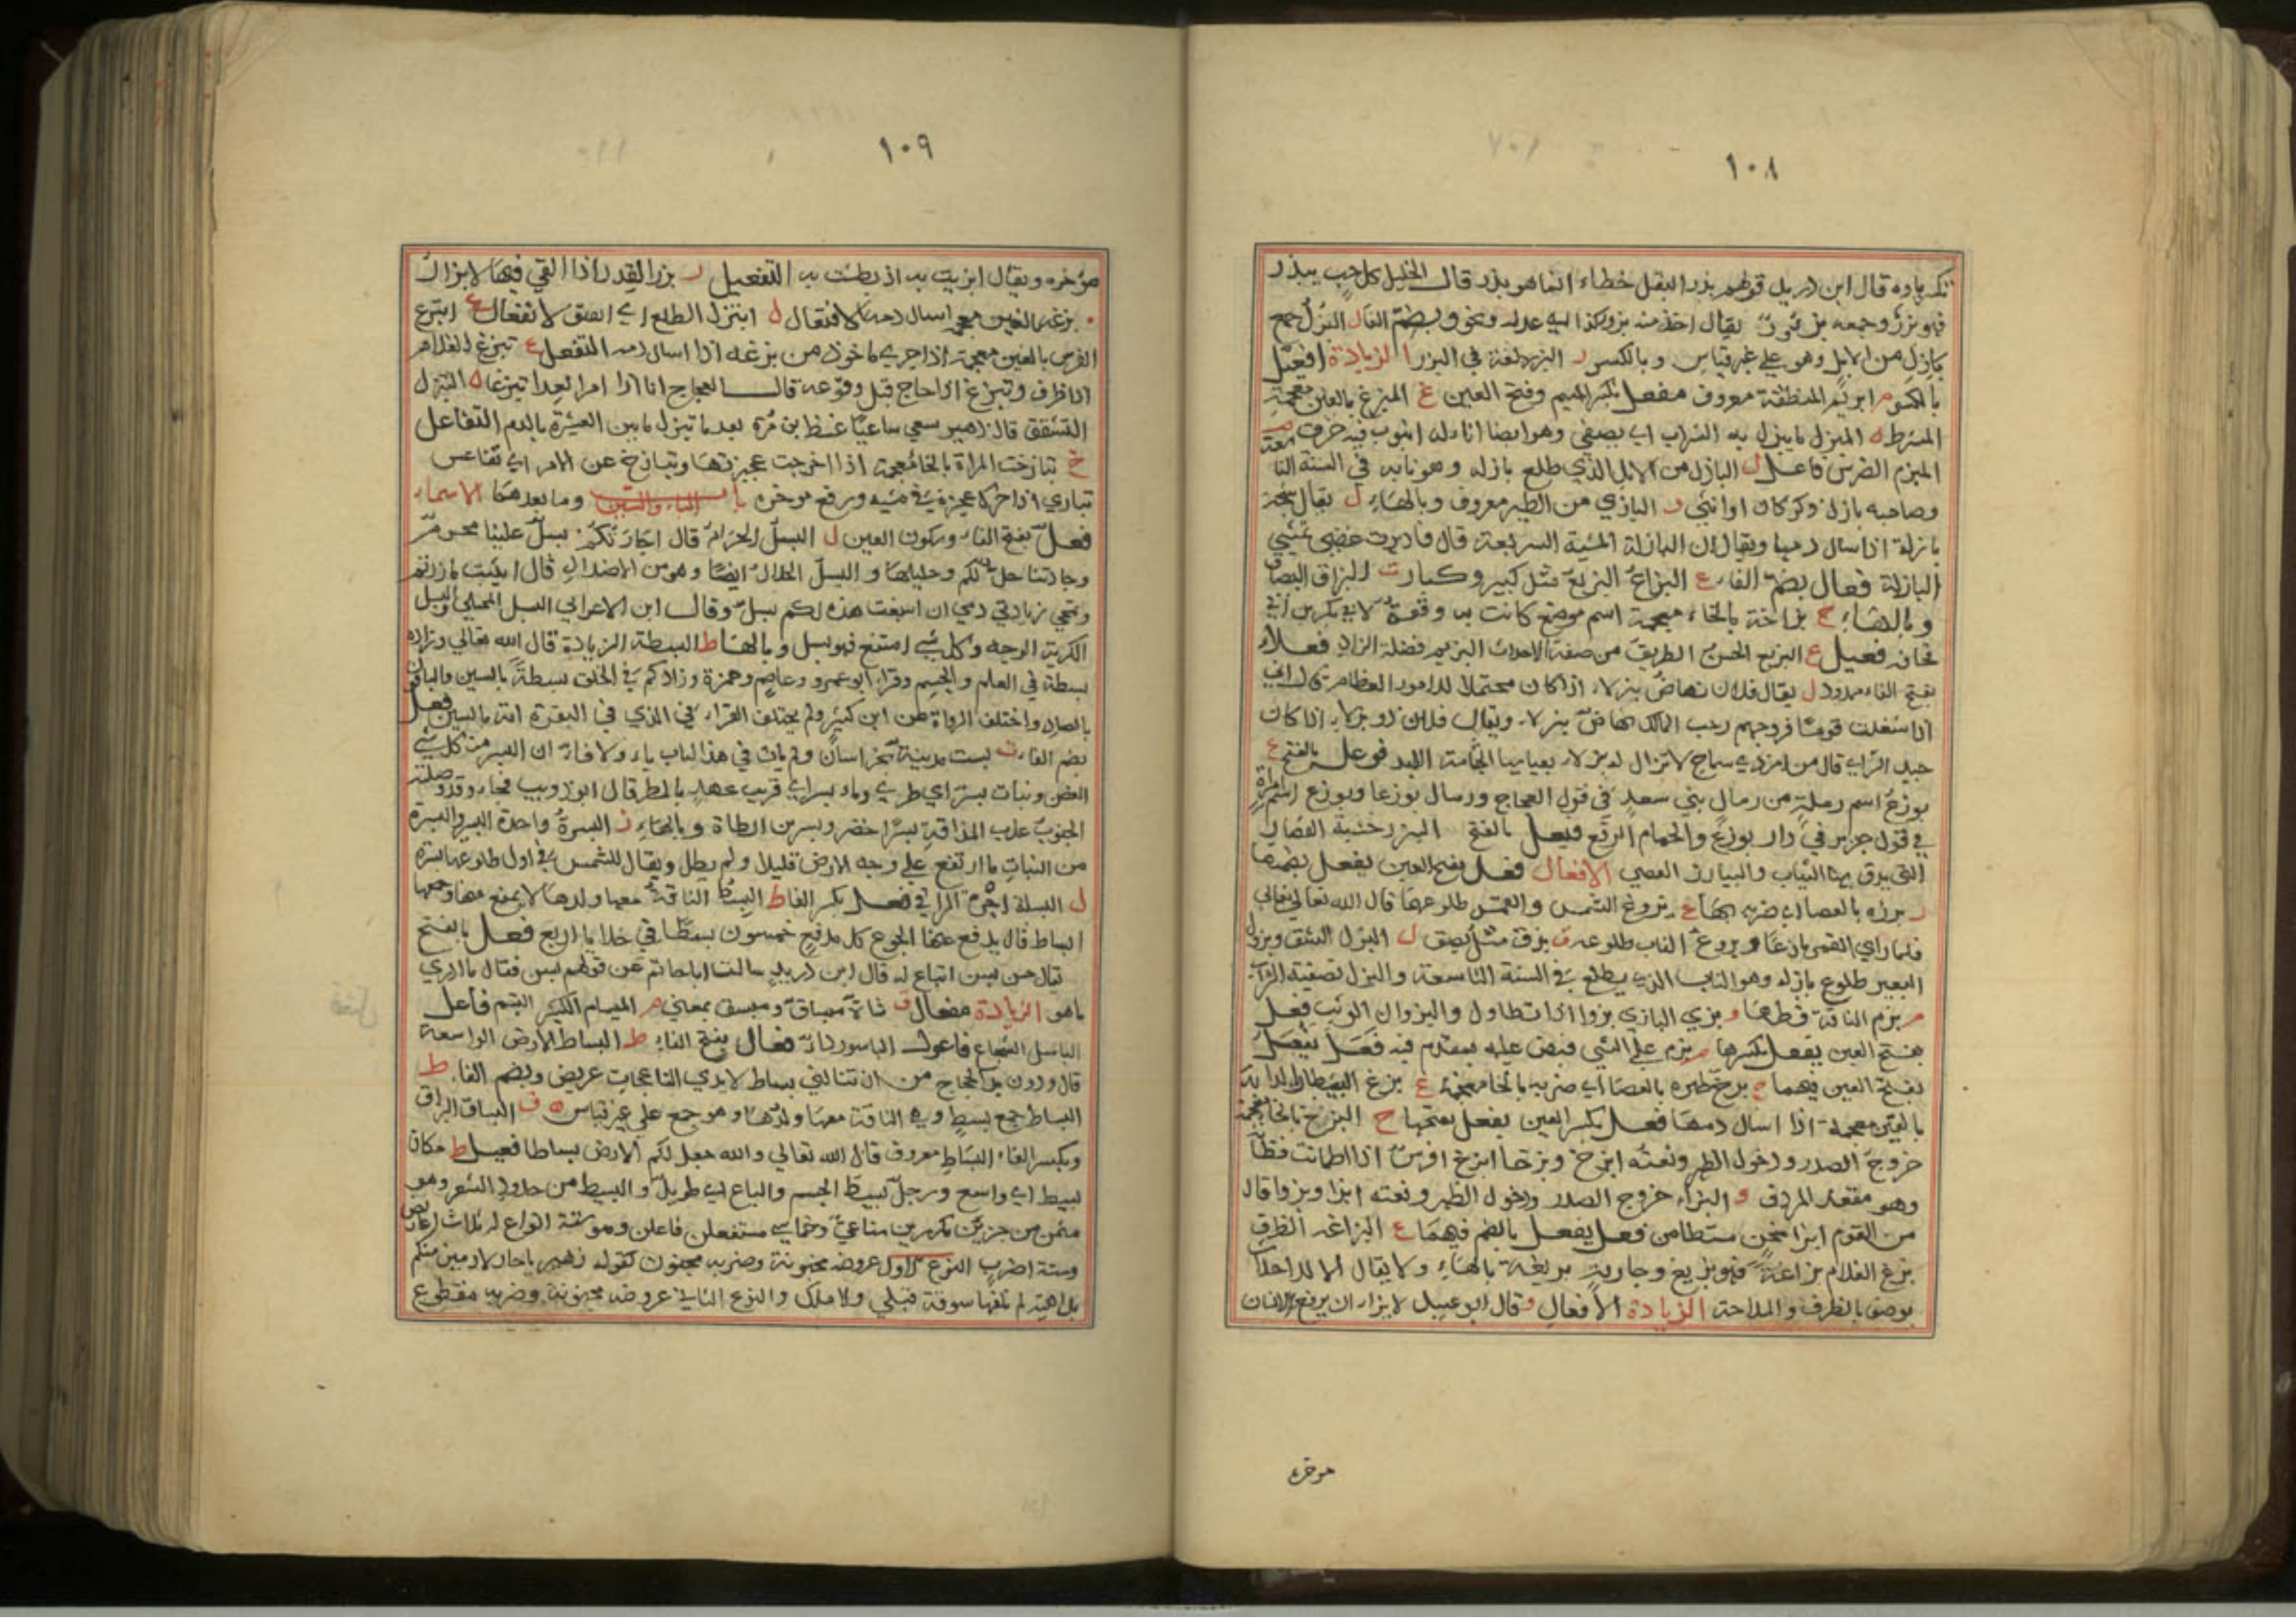 ١٠٨
قال ابن دريد قولهم بذر البقل خطاء انما هو بزر قال الخليل كل حب يبذر
فهو بزر وجمعه بزور يقال اخذ منه بزو كذا اي عدله ونحو وبضم الفاء ل البزل جمع
بازل من الابل وهو على غير قياس وبالكسر ر البزر لغة في البزر الزيادة افعيل
بالكسر م ابزيم المنطقة معروف مفعل بكسر الميم وفتح العين غ المبزغ بالغين معجمة
المشرط ل المبزل ما يبزل به الشراب اي يصفى وهو ايضا اناء له انبوب فيه خرق
المبزم الضرس فاعل ل البازل من الابل الذي طلع بازله وهو نابه في السنة التا
وصاحبه بازل ذكر كان او انثى و البازي من الطير معروف وبالهاء ل يقال شجة
بازلة اذا سال دمها ويقال ان البازلة المشية السريعة قال فادبرت غضبى تمشي
البازلة فعال بضم الفاء ع البزاع البزيع مثل كبير وكبار ق البزاق البصاق
وبالهاء خ بزاخة بالخاء معجمة اسم موضع كانت به وقعة لابي بكر بن ابي
قحافة فعيل ع البزيع الحسن الظريف من صفة الاحداث البزيم فضلة الزاد فعلاء
بفتح الفاء ممدود ل يقال فلان نهاض ببزلاء اذا كان محتملا للامور العظام قال اني
اذا شغلت قوما فروجهم رحب المسالك نهاض ببزلاء ويقال فلان ذو بزلاء اذا كان
جيد الراي قال من امر ذي سماح لا تزال له بزلاء يعيا بها الجثامة اللبد فوعل بالفتح ع
بوزع اسم رملة من رمال بني سعد في قول العجاج ورمال بوزعا وبوزع اسم امراة
في قول جرير في دار بوزع والحمام الوقع فيعل بالفتح البيزر خشبة القصار
التي يدق بها الثياب والبيازر العصي الافعال فعل بفتح العين يفعل بضمها
ر بزره بالعصا اي ضربه بها غ بزوغ الشمس والقمر طلوعها قال الله تعالى
فلما راى القمر بازغا وبزوغ الناب طلوعه ق بزق مثل بصق ل البزل الشق وبزول
البعير طلوع بازله وهو الناب الذي يطلع في السنة التاسعة والبزل تصفية الشراب
م بزم الناقة فطرها و بزي البازي بزوا اذا تطاول والبزوان الوثب فعل
بفتح العين يفعل بكسرها م بزم على الشي قبض عليه بمقدم فيه فعل يفعل
بفتح العين فيهما خ بزخ ظهره بالعصا اي ضربه بالخاء معجمة غ بزغ البيطار الدابة
بالغين معجمة اذا اسال دمها فعل بكسر العين يفعل بفتحها خ البزخ بالخاء معجمة
خروج الصدر ودخول الظهر ونعته ابزخ وبزخا ابزخ افرس اذا اطمانت قطاته
وهو مقعد الردف و البزاء خروج الصدر ودخول الظهر ونعته ابزا وبزوا قال
من القوم ابزا منحن متطامن فعل يفعل بالضم فيهما ع البزاعة الظرف
بزع الغلام بزاعة فهو بزيع وجارية بزيعة بالهاء ولا يقال الا للاحداث
يوصف بالظرف والملاحة الزيادة الافعال و قال ابو عبيد لابزاء ان يرفع الانسان
موخره
١٠٩
موخره ويقال ابزيت به اذ بطشت به التفعيل ر بزر القدر اذا القى فيها الابزار
بزغه بالغين معجمة اسال دمه الافتعال ل ابتزل الطلع اي انفتق الانفعال ابتزغ
الفرس بالغين معجمة اذا جرى ماخوذ من بزغه اذا اسال دمه التفعل ع تبزع الغلام
اذا ظرف وتبزع اذا حاج قبل وقوعه قال العجاج انا اذا امر العدا تبزعا ل التبزل
التشقق قال زهير سعى ساعيا غيظ بن مرة بعد ما تبزل ما بين العشيرة بالدم التفاعل
خ تبازخت المراة بالخاء معجمة اذا اخرجت عجيزتها وتبازخ عن الامر اي تقاعس
تبازى اذا حرك عجيزته في مشيه ورفع موخره باب الباء والسين وما بعدهما الاسماء
فعل بفتح الفاء وسكون العين ل البسل الحرام قال اجارتكم بسل علينا محرم
وجارتنا حل لكم وحليلها و البسل الحلال ايضا وهو من الاضداد قال ايثبت ما زدتم
وتمحى زيادتي دمي ان اسيغت هذه لكم بسل وقال ابن الاعرابي البسل
الكريه الوجه وكل شي امتنع فهو بسل وبالهاء ط البسطة الزيادة قال الله تعالى وزاده
بسطة في العلم والجسم وقرا ابو عمرو وعاصم وحمزة وزادكم في الخلق بسطة بالسين والباقون
بالصاد واختلف الرواة عن ابن كثير ولم يختلف القراء في الذي في البقرة انه بالسين فعل
بضم الفاء ت بست مدينة بخراسان ولم يات في هذا الباب باء ولا فاء ر البسر من كل شي
الغض ونبات بسر اي طري وماء بسر اي قريب عهد بالمطر قال ابو ذويب فجاء وقد فصلته
الجنوب عذب المذاقة بسرا خضر وبسر بن ارطاة وبالهاء ر البسرة واحدة البسر والبسرة
من النبات ما ارتفع على وجه الارض قليلا ولم يطل ويقال للشمس في اول طلوعها بسرة
ل البسلة اجرة الراقي فعل بكسر الفاء ط البسط الناقة معها ولدها لا يمنع منها وجمعها
ابساط قال يدفع عنها الجوع كل مدفع خمسون بسطا في خلايا اربع فعل بالفتح
يقال حسن بسن اتباع له قال ابن دريد سالت ابا حاتم عن قولهم بسن فقال ما ادري
ما هو الزيادة مفعال ق شاة مبساق ومبسق بمعنى م المبسام الكثير التبسم فاعل
الباسل الشجاع فاعول الباسور داء فعال بفتح الفاء ط البساط الارض الواسعة
قال ودون يد الحجاج من ان تنالني بساط لايدي الناعجات عريض وبضم الفاء ط
البساط جمع بسط وهي الناقة معها ولدها وهو جمع على غير قياس ق البساق البزاق
وبكسر الفاء البساط معروف قال الله تعالى والله جعل لكم الارض بساطا فعيل ط مكان
بسيط اي واسع ورجل بسيط الجسم والباع اي طويل و البسيط من حدود الشعر وهو
مثمن من جزءين مكررين سباعي وخماسي مستفعلن فاعلن وهو ستة انواع له ثلاث اعاريض
وستة اضرب النوع الاول عروضه مخبونة وضربه مخبون كقوله زهير يا حار لا ارمين منكم
بداهية لم يلقها سوقة قبلي ولا ملك والنوع الثاني عروضه مخبونة وضربه مقطوع